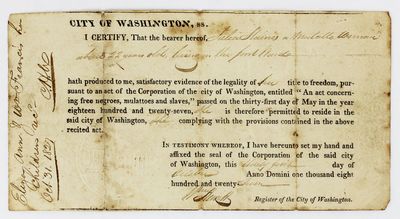 CITY OF WASHINGTON, ss.
I CERTIFY, That the bearer hereof, a Mulatto Woman
about years old, living in the first Ward
hath produced to me, satisfactory evidence of the legality of her title to freedom, pursuant
to an act of the Corporation of the city of Washington, entitled "An act concerning
free negroes, mulattoes and slaves," passed on the thirty-first day of May in the year
eighteen hundred and twenty-seven, she is therefore permitted to reside in the
said city of Washington, she complying with the provisions contained in the above
recited act.
IN TESTIMONY WHEREOF, I have hereunto set my hand and
affixed the seal of the Corporation of the said city
of Washington, this day of
October Anno Domini one thousand eight
hundred and twenty-seven
Register of the City of Washington.
Francis her
Children &c
Oct. 31. 1827